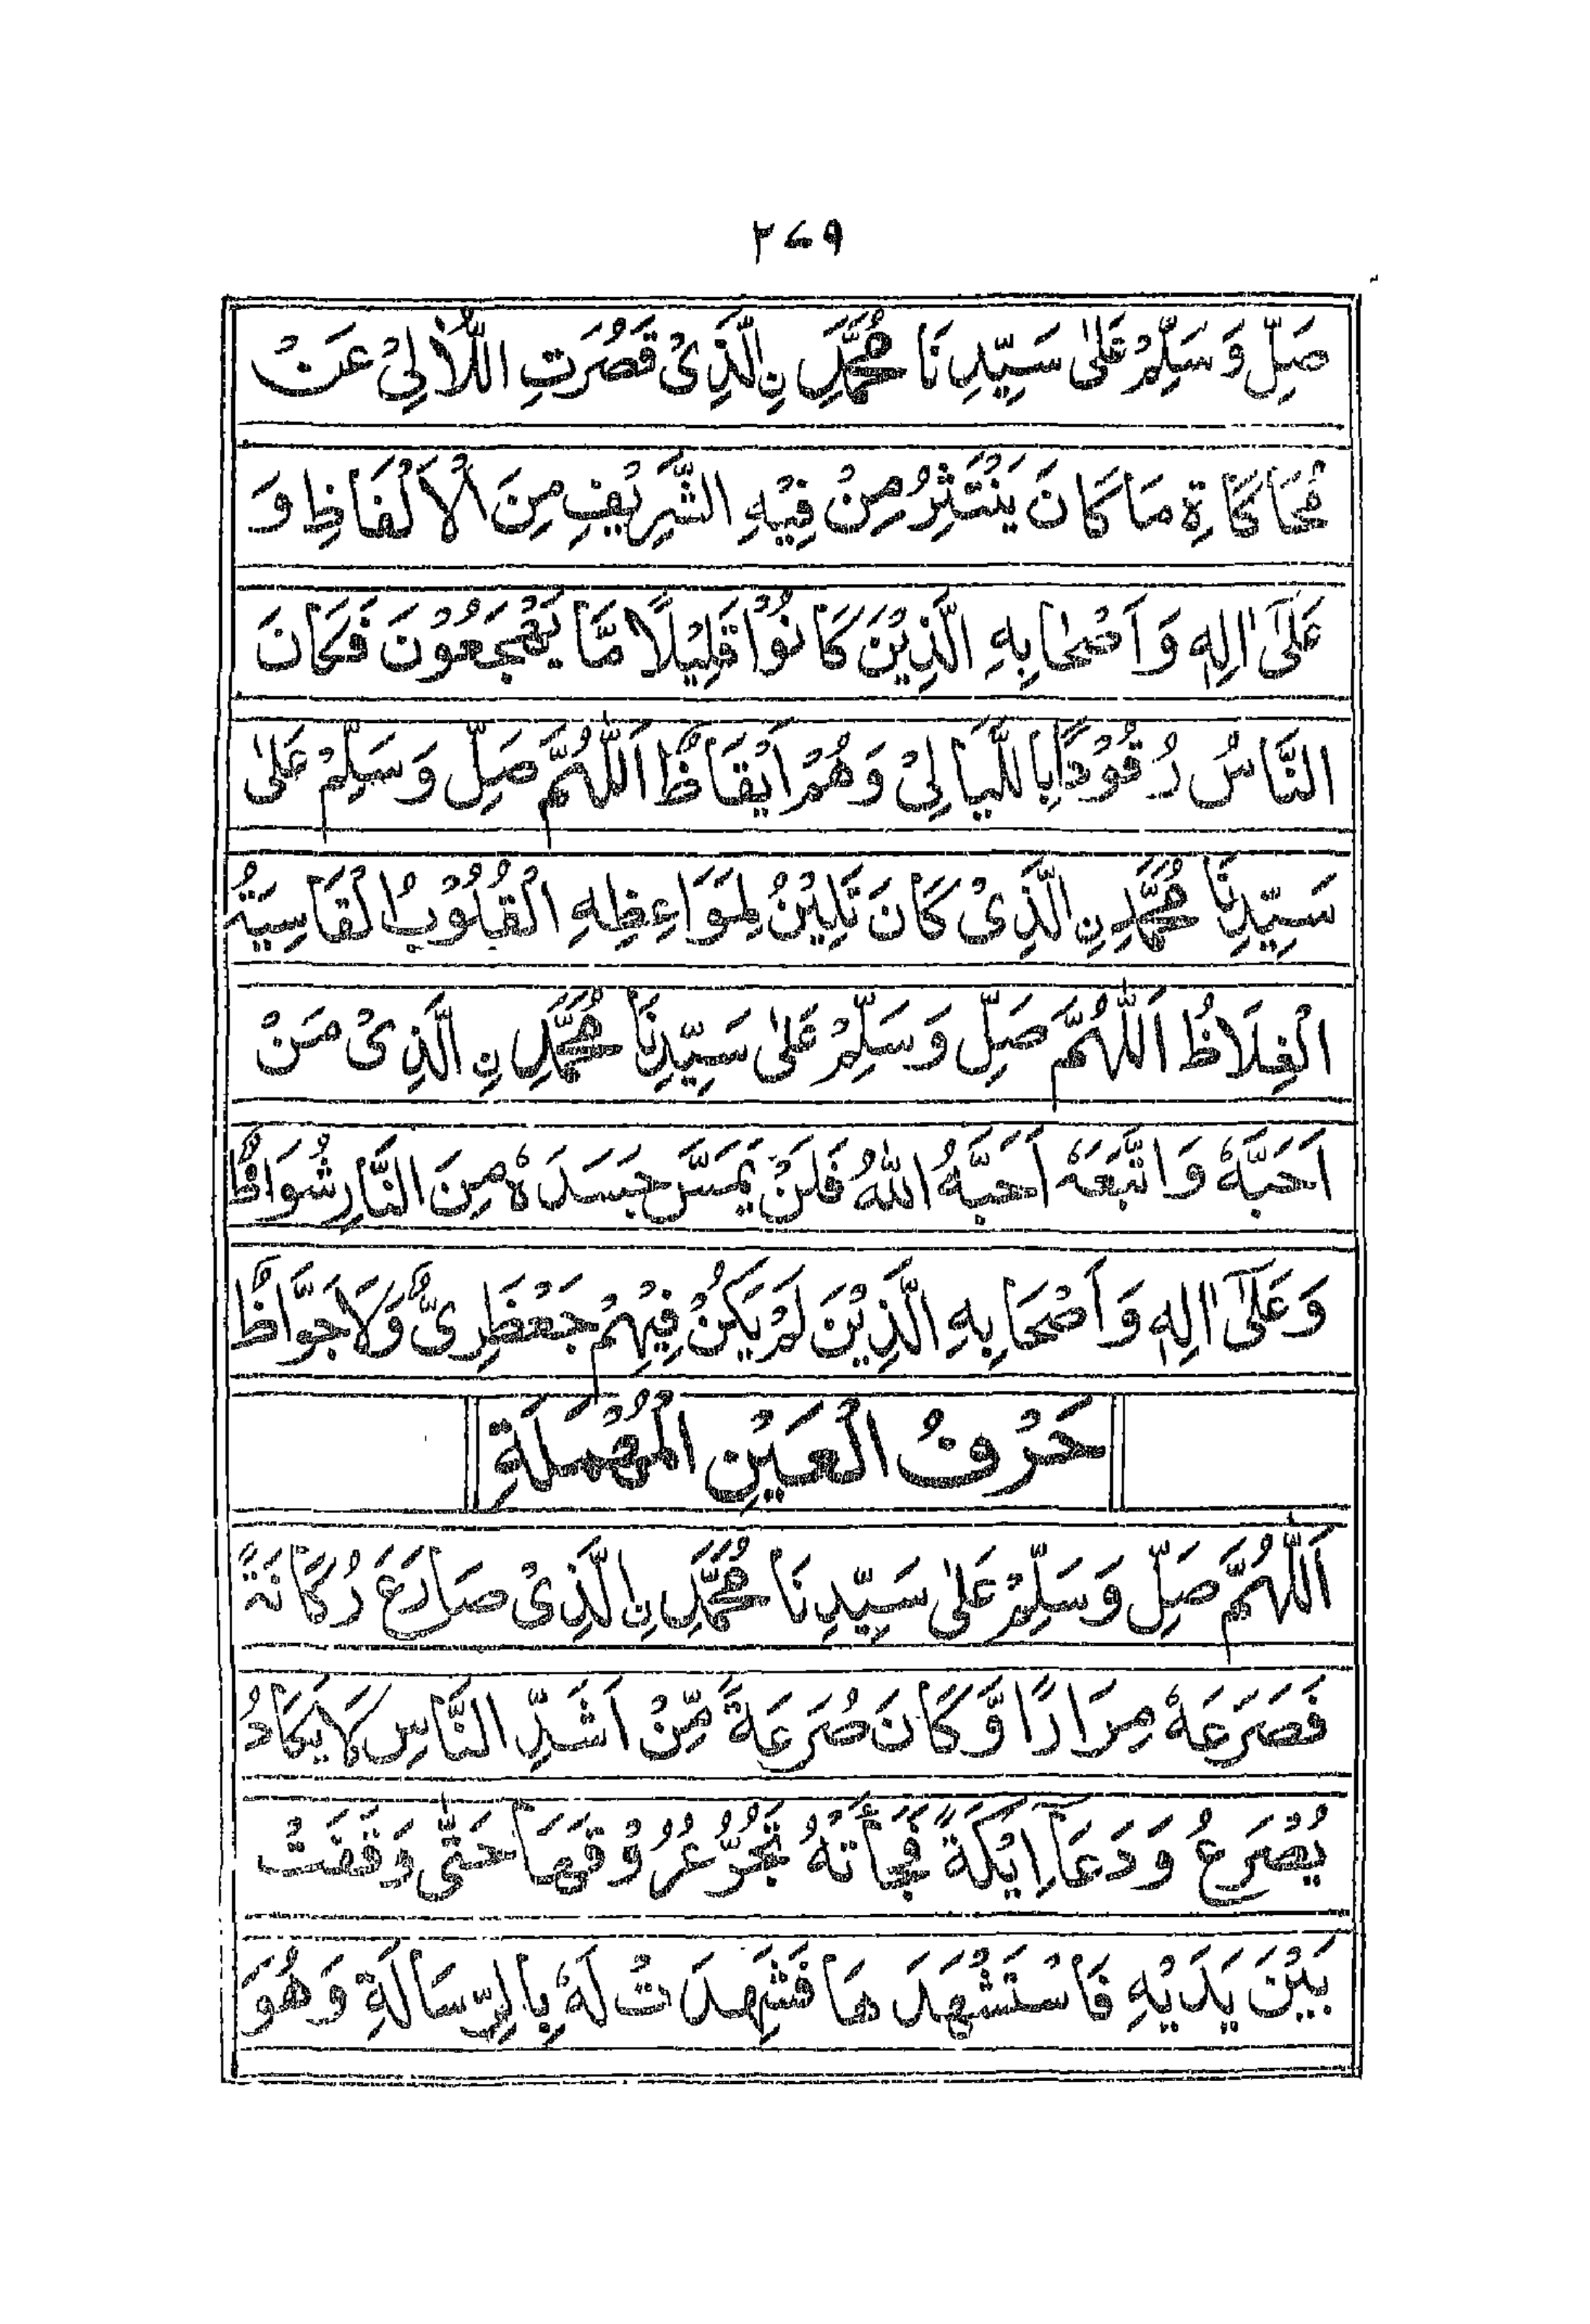 ۲۷۹
صَلِّ وَسَلِّمْ عَلٰى سَيِّدِنَا مُحَمَّدِ نِ الَّذِىْ قَصُرَتِ اللَّاٰلِىْ عَنْ
مُحَاكَاةِ مَا كَانَ يَنْتَثِرُ مِنْ فِيْهِ الشَّرِيْفِ مِنَ الْاَلْفَاظِ وَ
عَلٰٓى اٰلِهٖ وَاَصْحَابِهِ الَّذِيْنَ كَانُوْا قَلِيْلًا مَّا يَهْجَعُوْنَ فَكَانَ
النَّاسُ رُقُوْدًا بِاللَّيَالِىْ وَهُمْ اَيْقَاظٌ اَللّٰهُمَّ صَلِّ وَسَلِّمْ عَلٰى
سَيِّدِنَا مُحَمَّدِ نِ الَّذِىْ كَانَ تَلِيْنُ لِمَوَاعِظِهِ الْقُلُوْبُ الْقَاسِيَةُ
الْغِلَاظُ اَللّٰهُمَّ صَلِّ وَسَلِّمْ عَلٰى سَيِّدِنَا مُحَمَّدِ نِ الَّذِىْ مَنْ
اَحَبَّهٗ وَاتَّبَعَهٗ اَحَبَّهُ اللّٰهُ فَلَنْ يَمَسَّ جَسَدَهٗ مِنَ النَّارِ شُوَاظٌ
وَعَلٰٓى اٰلِهٖ وَاَصْحَابِهِ الَّذِيْنَ لَمْ يَكُنْ فِيْهِمْ جَعْظَرِىٌّ وَّلَا جَوَّاظٌ
حَرْفُ الْعَيْنِ الْمُهْمَلَةِ
اَللّٰهُمَّ صَلِّ وَسَلِّمْ عَلٰى سَيِّدِنَا مُحَمَّدِ نِ الَّذِىْ صَارَعَ رُكَانَةً
فَصَرَعَهٗ مِرَارًا وَّكَانَ صُرَعَةً مِّنْ اَشَدِّ النَّاسِ لَا يَكَادُ
يُصْرَعُ وَدَعَآ اَيْكَةً فَجَأَتْهُ تَجُرُّ عُرُوْقَهَا حَتّٰى وَقَفَتْ
بَيْنَ يَدَيْهِ فَاسْتَشْهَدَهَا فَشَهِدَتْ لَهٗ بِالرِّسَالَةِ وَهُوَ